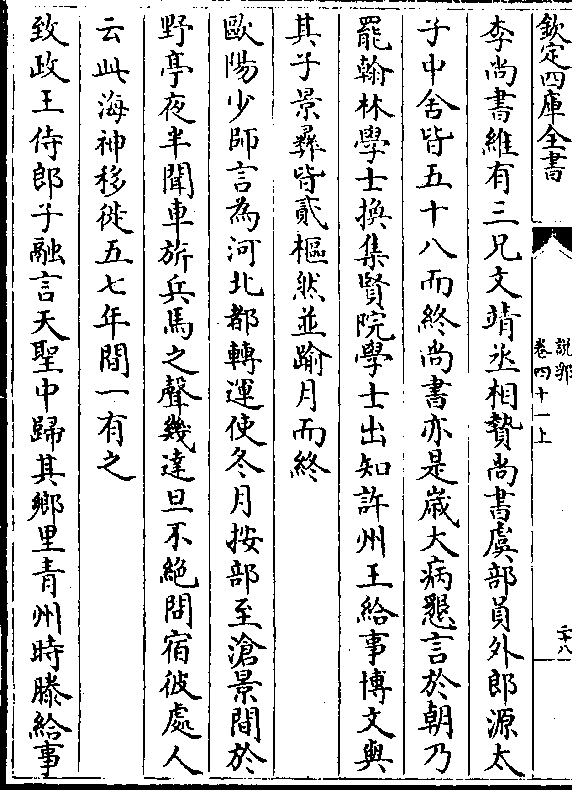 欽定四庫全書
說郛
卷四十一上
二十八
李尚書維有三兄文靖丞相贄尚書虞部員外郎源太
子中舍皆五十八而終尚書亦是歲大病懇言於朝乃
罷翰林學士換集賢院學士出知許州王給事博文與
其子景彝皆貳樞然並踰月而終
歐陽少師言為河北都轉運使冬月按部至滄景間於
野亭夜半聞車旂兵馬之聲幾達旦不絶問宿彼處人
云此海神移徙五七年間一有之
致政王侍郎子融言天聖中歸其鄉里青州時滕給事